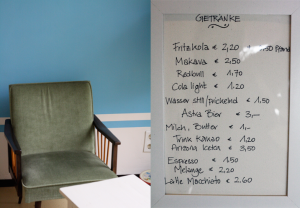 GETRÄNKE
Fritzkola € 2,20
Makava € 2,50
Redbull € 1.70
Cola light € 1.20
Wasser still/prickelnd € 1.50
Astra Bier € 3,-
Milch, Butter € 1,-
Trink Kakao € 1.20
Arizona € 3.50
Espresso € 1.50
Melange € 2.20
Latte Macchiato € 2.60